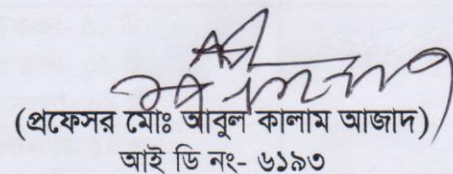 (প্রফেসর মোঃ আবুল কালাম আজাদ)
আই ডি নং- ৬১৯৩